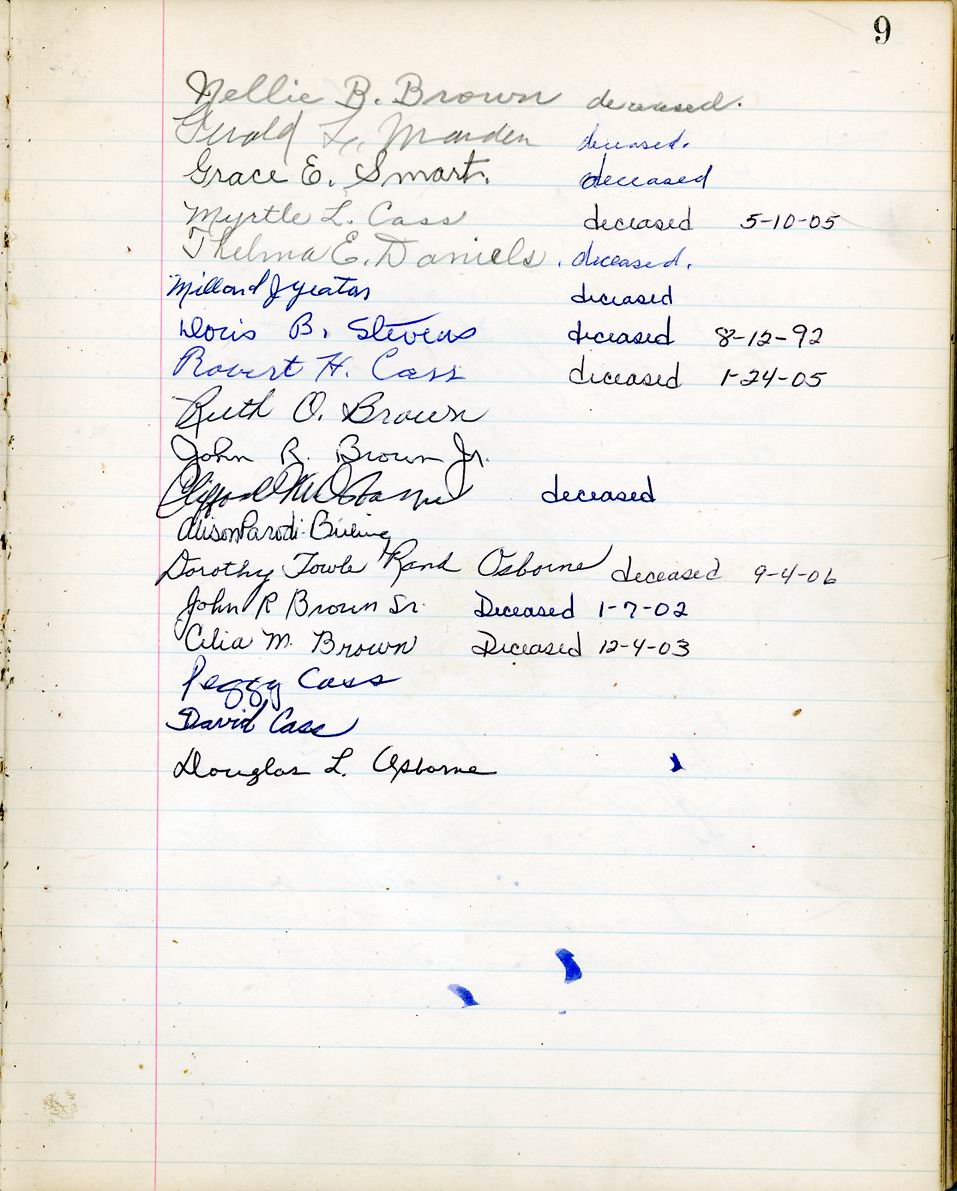 9
Nellie B. Brown deceased.
Gerald L. Marden deceased.
Grace E. Smart. deceased
Myrtle L. Cass deceased 5-10-05
Thelma E. Daniels. deceased.
Millard J Yeaton deceased
Doris B. Stevens deceased 8-12-92
Robert H. Cass deceased 1-24-05
Ruth O. Brown
John R. Brown Jr.
Clifford M Osborne deceased
Alison Parodi
Dorothy Towle Rand Osborne deceased 9-4-06
John R Brown Sr. Deceased 1-7-02
Celia M. Brown Deceased 12-4-03
Peggy Cass
David Cass
Douglas L. Osborne